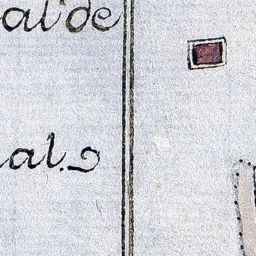 al de
al.